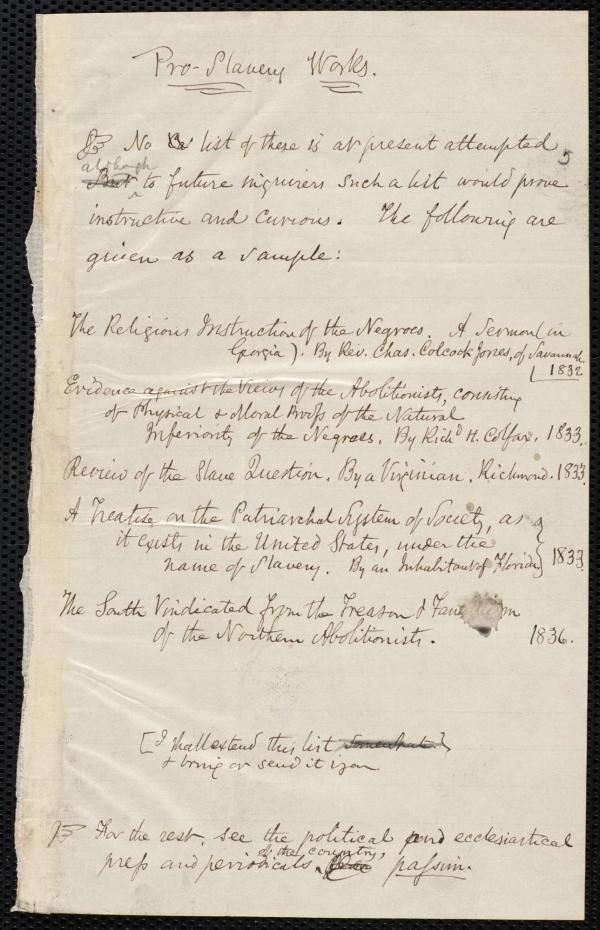 Pro-Slavery Works.
No list of these is at present attempted
although
But to future inquirers such a list would prove
5
instructive and curious. The following are
given as a sample:
The Religious Instruction of the Negroes. A Sermon (in
Georgia). By Rev. Chas. Colcock Jones, of Savannah
1832
Evidence against the Views of the Abolitionists, consisting
of Physical & Moral Proofs of the Natural
Inferiority of the Negroes. By Richd H. Colfax. 1833.
Review of the Slave Question. By a Virginian. Richmond. 1833.
A Treatise on the Patriarchal System of Society, as
it exists in the United States, under the
name of Slavery. By an Inhabitant of Florida} 1833.
The South Vindicated from the Treason & Fanaticism
of the Northern Abolitionists. 1836.
[I shall extend this list somewhat]
& bring or send it
For the rest, see the political and ecclesiastical
of the country,
press and periodicals, passim.